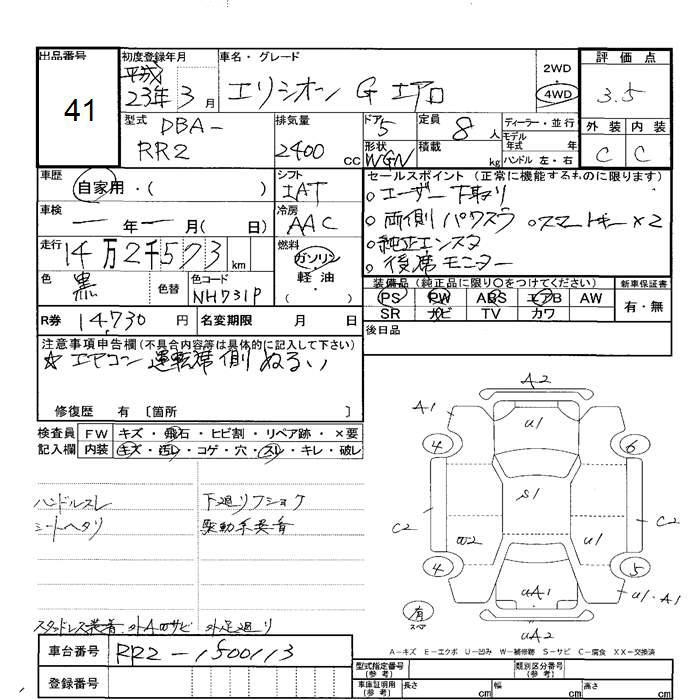 出品番号
41
初度登録年月
平成
23年 3月
車名・グレード
エリシオン G エアロ
2WD
4WD
評価点
3.5
型式
DBA-
RR2
排気量
2400 cc
ドア
5
定員
8人
形状
WGN
積載
kg
ディーラー・並行
モデル
年式 年
ハンドル 左・右
外装 内装
C C
車歴
自家用・( )
シフト
IAT
セールスポイント (正常に機能するものに限ります)
○ユーザー下取り
○両側パワスラ ○スマートキー×2
○純正エンスタ
○後席モニター
車検
一年一月( 日)
冷房
AAC
走行
14万2千573 km
燃料
ガソリン
軽油
・( )
色
黒
色替
色コード
NH731P
装備品 (純正品に限り○をつけてください)
PS PW ABS エアB AW
SR ナビ TV カワ
新車保証書
有・無
R券 14,730 円
名変期限 月 日
後日品
注意事項申告欄(不具合内容等は具体的に記入して下さい)
☆エアコン 運転席側 ぬるい
修復歴 有 〔箇所 〕
検査員
記入欄
FW キズ・飛石・ヒビ割・リペア跡・×要
内装 キズ・汚レ・コゲ・穴・スレ・キレ・破レ
ハンドルスレ
シートヘタリ
下廻りフショク
駆動系異音
スタッドレス装着 外Aワサビ 外足廻り
A2
A1
U1
4
6
S1
C2
C2
W2
U1
4
5
UA1
U1・A1
有
スペア
UA2
A-キズ E-エクボ U-凹み W-補修跡 S-サビ C-腐食 XX-交換済
車台番号
RR2-1500113
登録番号
型式指定番号
(参考)
類別区分番号
(参考)
車庫証明用
(参考)
長さ cm
幅 cm
高さ cm